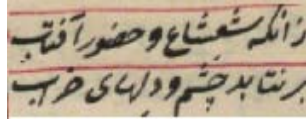 زانکه شعشاع و حضور آفتاب
بر نتابد چشم و دلهای خراب